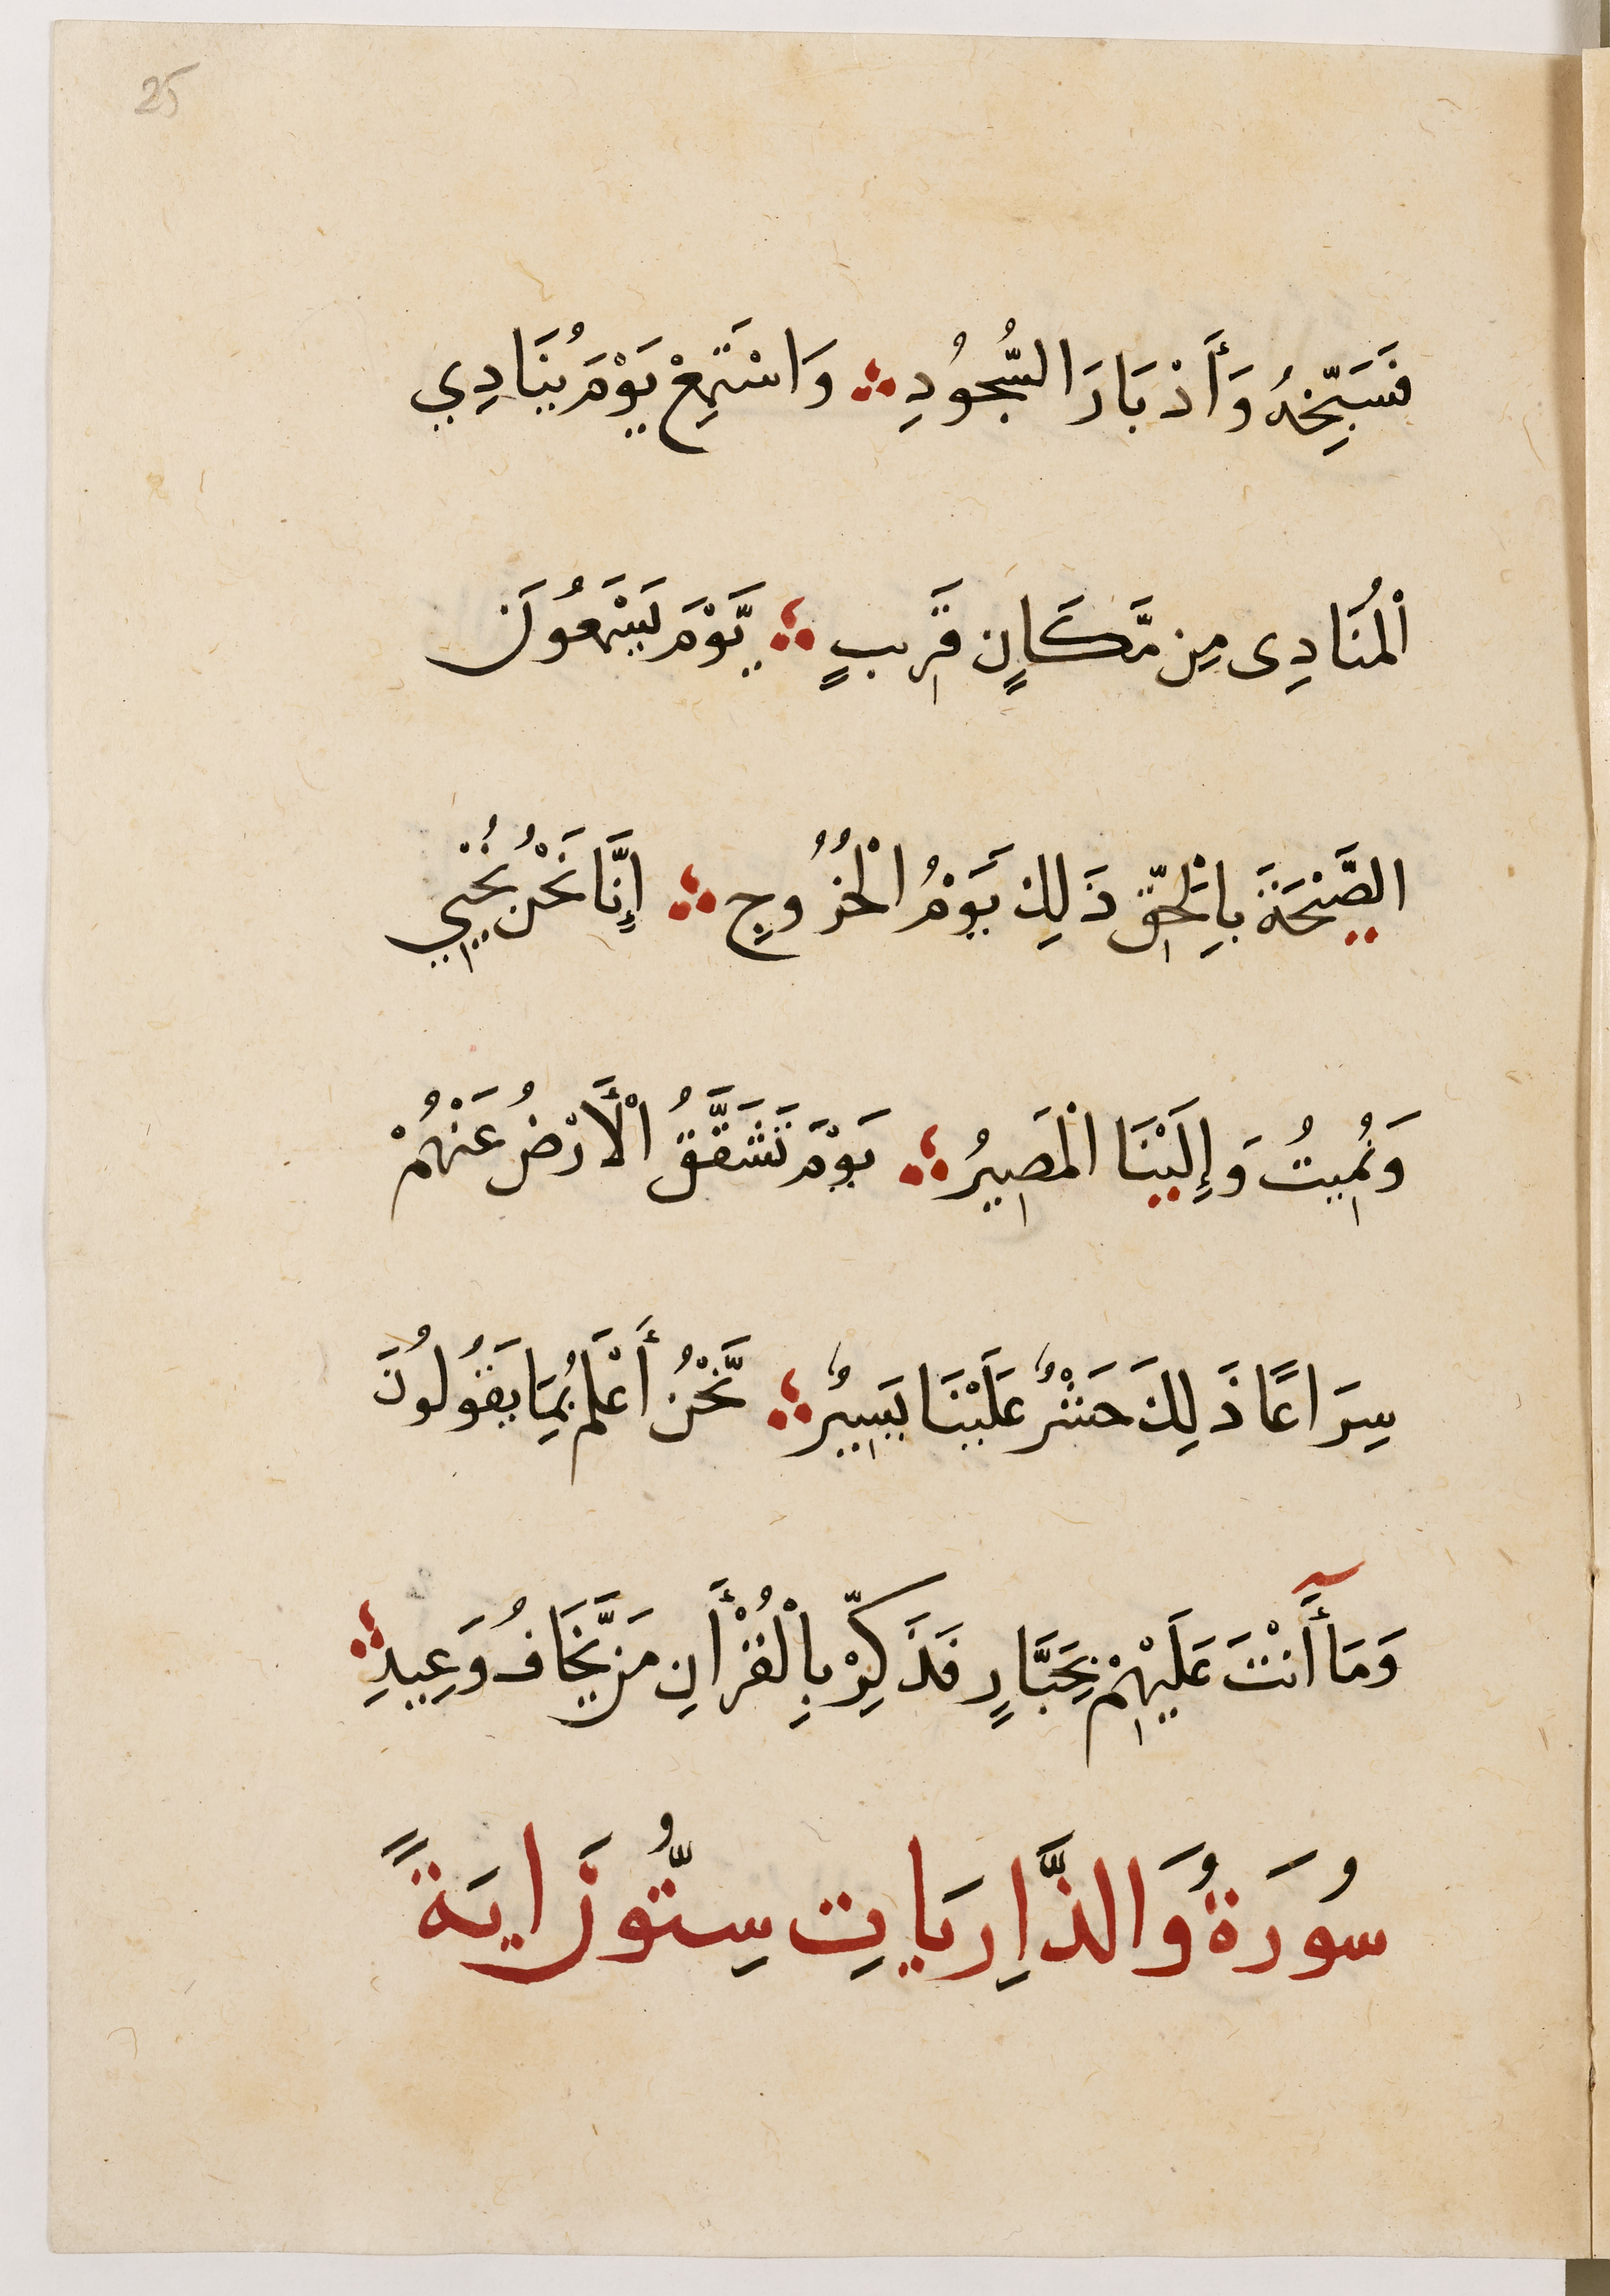 25
فَسَبِّحْهُ وَأَدْبَارَ السُّجُودِ ؞ وَاسْتَمِعْ يَوْمَ يُنَادِي
الْمُنَادِى مِن مَّكَانٍ قَرِيبٍ ؞ يَّوْمَ يَسْمَعُونَ
الصَّيْحَةَ بِالْحَقِّ ذَلِكَ يَوْمُ الْخُرُوجِ ؞ إِنَّا نَحْنُ نُحْيِي
وَنُمِيتُ وَإِلَيْنَا الْمَصِيرُ ؞ يَوْمَ تَشَقَّقُ الْأَرْضُ عَنْهُمْ
سِرَاعًا ذَلِكَ حَشْرٌ عَلَيْنَا يَسِيرٌ ؞ نَّحْنُ أَعْلَمُ بِمَا يَقُولُونَ
وَمَآ أَنْتَ عَلَيْهِمْ بِجَبَّارٍ فَذَكِّرْ بِالْقُرْأَنِ مَن يَّخَافُ وَعِيدِ ؞
سُورَةُ وَالذَّارِيَاتِ سِتُّونَ ايَةً